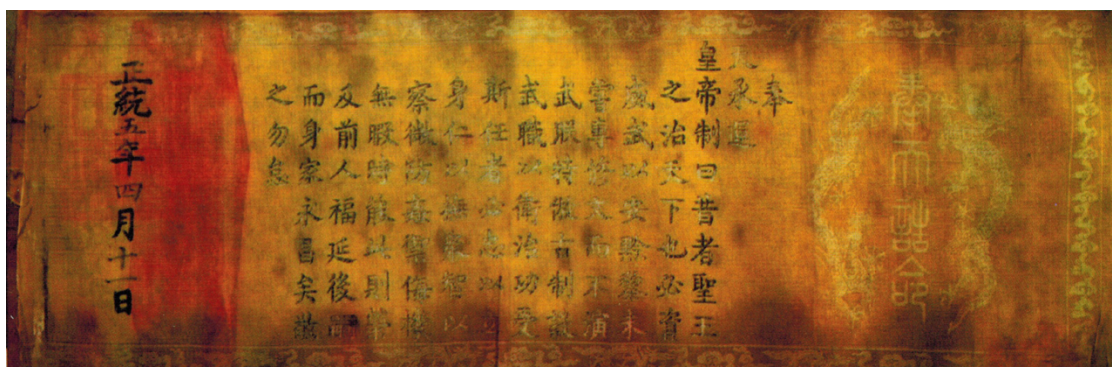 奉天誥命
奉
天承運
皇帝制曰昔者聖王
之治天下也必資
威武以安黔黎未
嘗專修文而不演
武朕特倣古制設
武職以衛治功受
斯任者必忠以立
身仁以撫衆智以
察微防姦禦侮機
無暇時能此則榮
及前人福延後嗣
而身家永昌矣敬
之勿怠
正統五年四月十一日